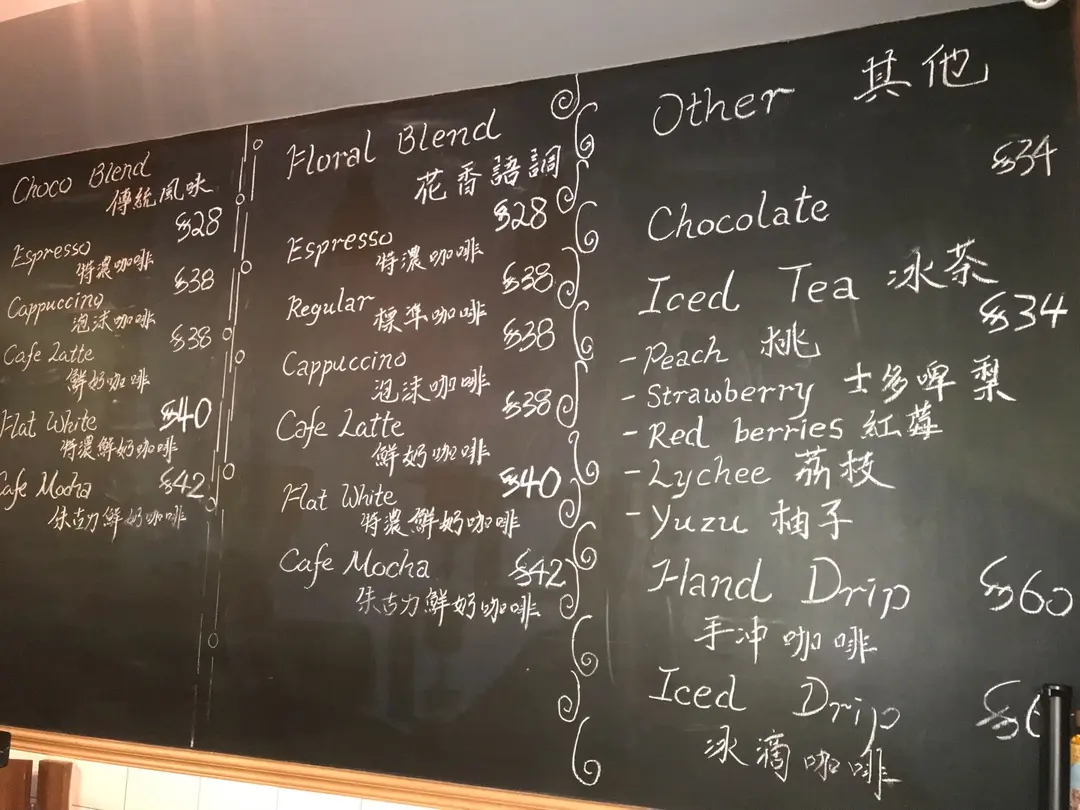 Choco Blend
傳統風味
$28
Espresso
特濃咖啡
$38
Cappuccino
泡沫咖啡
$38
Cafe Latte
鮮奶咖啡
$40
Flat White
特濃鮮奶咖啡
$42
Cafe Mocha
朱古力鮮奶咖啡
Floral Blend
花香語調
$28
Espresso
特濃咖啡
$38
Regular
標準咖啡
$38
Cappuccino
泡沫咖啡
$38
Cafe Latte
鮮奶咖啡
$40
Flat White
特濃鮮奶咖啡
Cafe Mocha $42
朱古力鮮奶咖啡
Other 其他
$34
Chocolate
Iced Tea 冰茶
$34
- Peach 桃
- Strawberry 士多啤梨
- Red berries 紅莓
- Lychee 荔枝
- Yuzu 柚子
Hand Drip $60
手冲咖啡
Iced Drip
冰滴咖啡